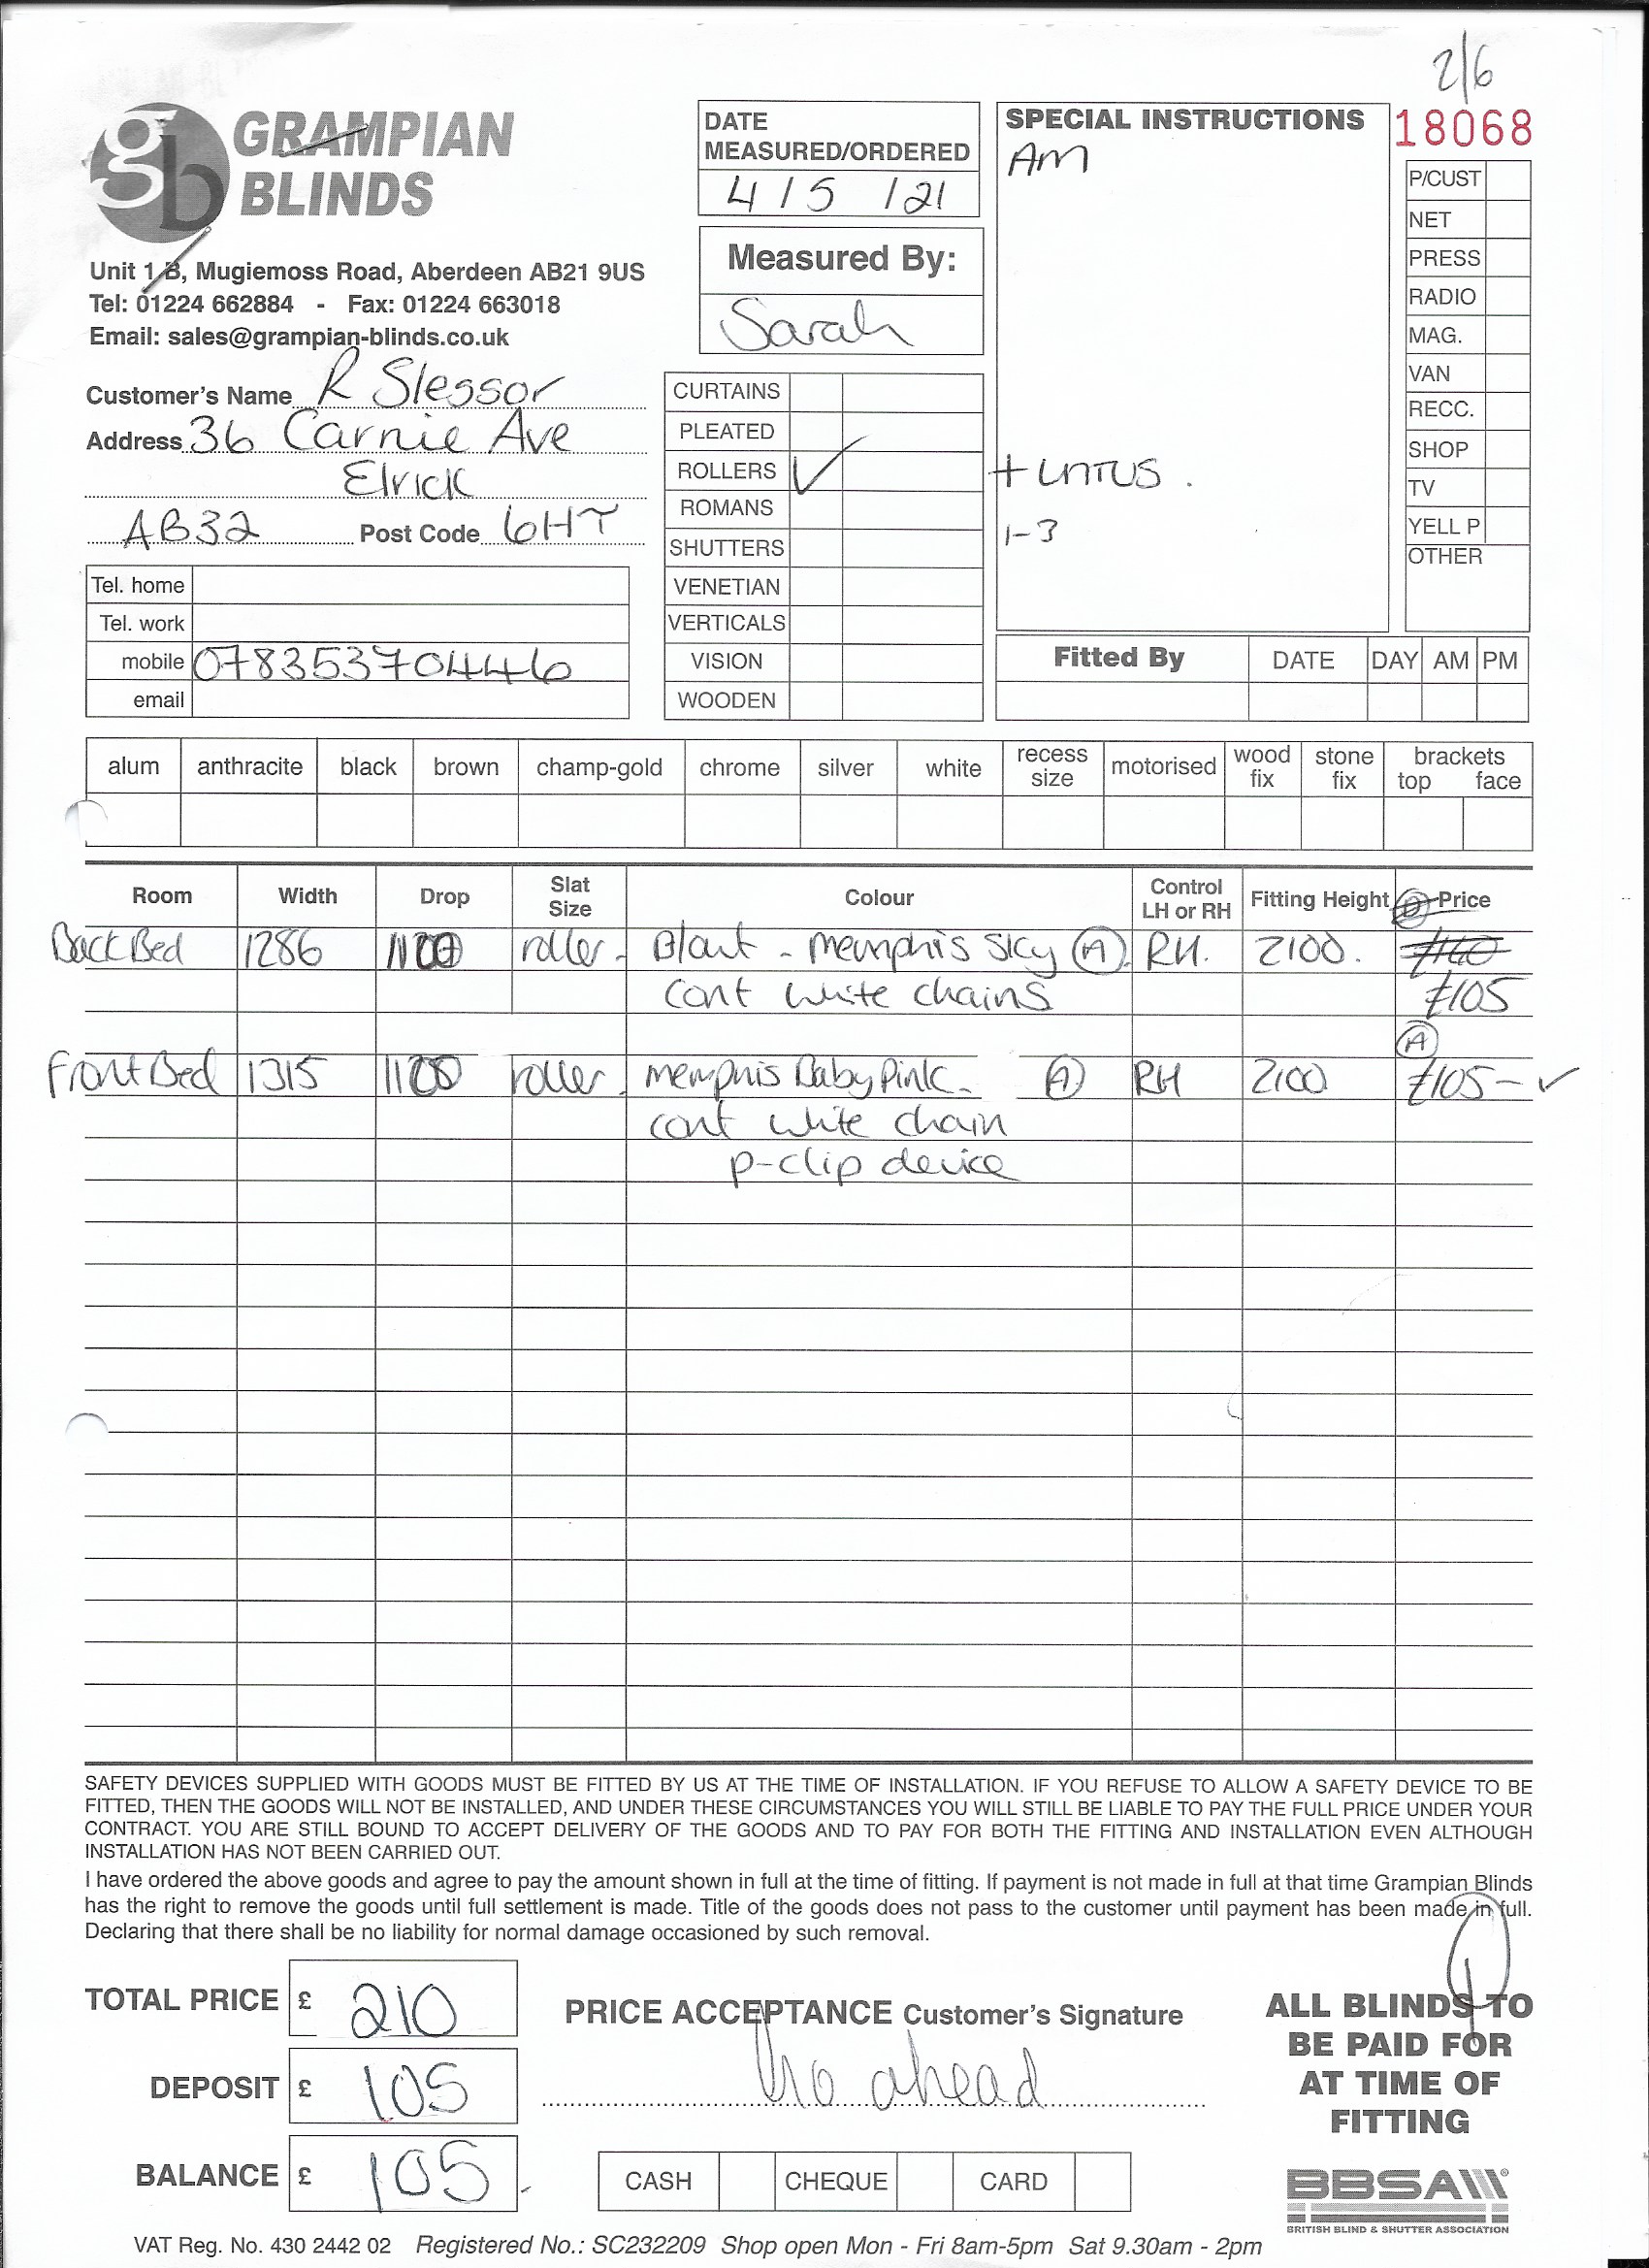 2/6
GRAMPIAN
BLINDS
Unit 1 B, Mugiemoss Road, Aberdeen AB21 9US
Tel: 01224 662884 - Fax: 01224 663018
Email: sales@grampian-blinds.co.uk
Customer's Name R Slessor
Address 36 Carnie Ave
Elrick
AB32 Post Code 6HT
Tel. home
Tel. work
mobile 07835370446
email
DATE
MEASURED/ORDERED
4 / 5 / 21
Measured By:
Sarah
CURTAINS
PLEATED
ROLLERS ✓
ROMANS
SHUTTERS
VENETIAN
VERTICALS
VISION
WOODEN
SPECIAL INSTRUCTIONS
AM
1-3
18068
P/CUST
NET
PRESS
RADIO
MAG.
VAN
RECC.
SHOP
TV
YELL P
OTHER
Fitted By DATE DAY AM PM
alum anthracite black brown champ-gold chrome silver white recess size motorised wood fix stone fix brackets top face
Room Width Drop Slat Size Colour Control LH or RH Fitting Height Price
Back Bed 1286 roller. - Memphis Sky (A). RH. 2100.
cont white chains £105
(A)
Front Bed 1315 roller. memphis Baby Pink. (A) RH 2100 £105 - ✓
cont white chain
p-clip device
SAFETY DEVICES SUPPLIED WITH GOODS MUST BE FITTED BY US AT THE TIME OF INSTALLATION. IF YOU REFUSE TO ALLOW A SAFETY DEVICE TO BE
FITTED, THEN THE GOODS WILL NOT BE INSTALLED, AND UNDER THESE CIRCUMSTANCES YOU WILL STILL BE LIABLE TO PAY THE FULL PRICE UNDER YOUR
CONTRACT. YOU ARE STILL BOUND TO ACCEPT DELIVERY OF THE GOODS AND TO PAY FOR BOTH THE FITTING AND INSTALLATION EVEN ALTHOUGH
INSTALLATION HAS NOT BEEN CARRIED OUT.
I have ordered the above goods and agree to pay the amount shown in full at the time of fitting. If payment is not made in full at that time Grampian Blinds
has the right to remove the goods until full settlement is made. Title of the goods does not pass to the customer until payment has been made in full.
Declaring that there shall be no liability for normal damage occasioned by such removal.
TOTAL PRICE £ 210
DEPOSIT £ 105
BALANCE £ 105.
PRICE ACCEPTANCE Customer's Signature
Go ahead
CASH CHEQUE CARD
ALL BLINDS TO
BE PAID FOR
AT TIME OF
FITTING
BBSA
BRITISH BLIND & SHUTTER ASSOCIATION
VAT Reg. No. 430 2442 02 Registered No.: SC232209 Shop open Mon - Fri 8am-5pm Sat 9.30am - 2pm